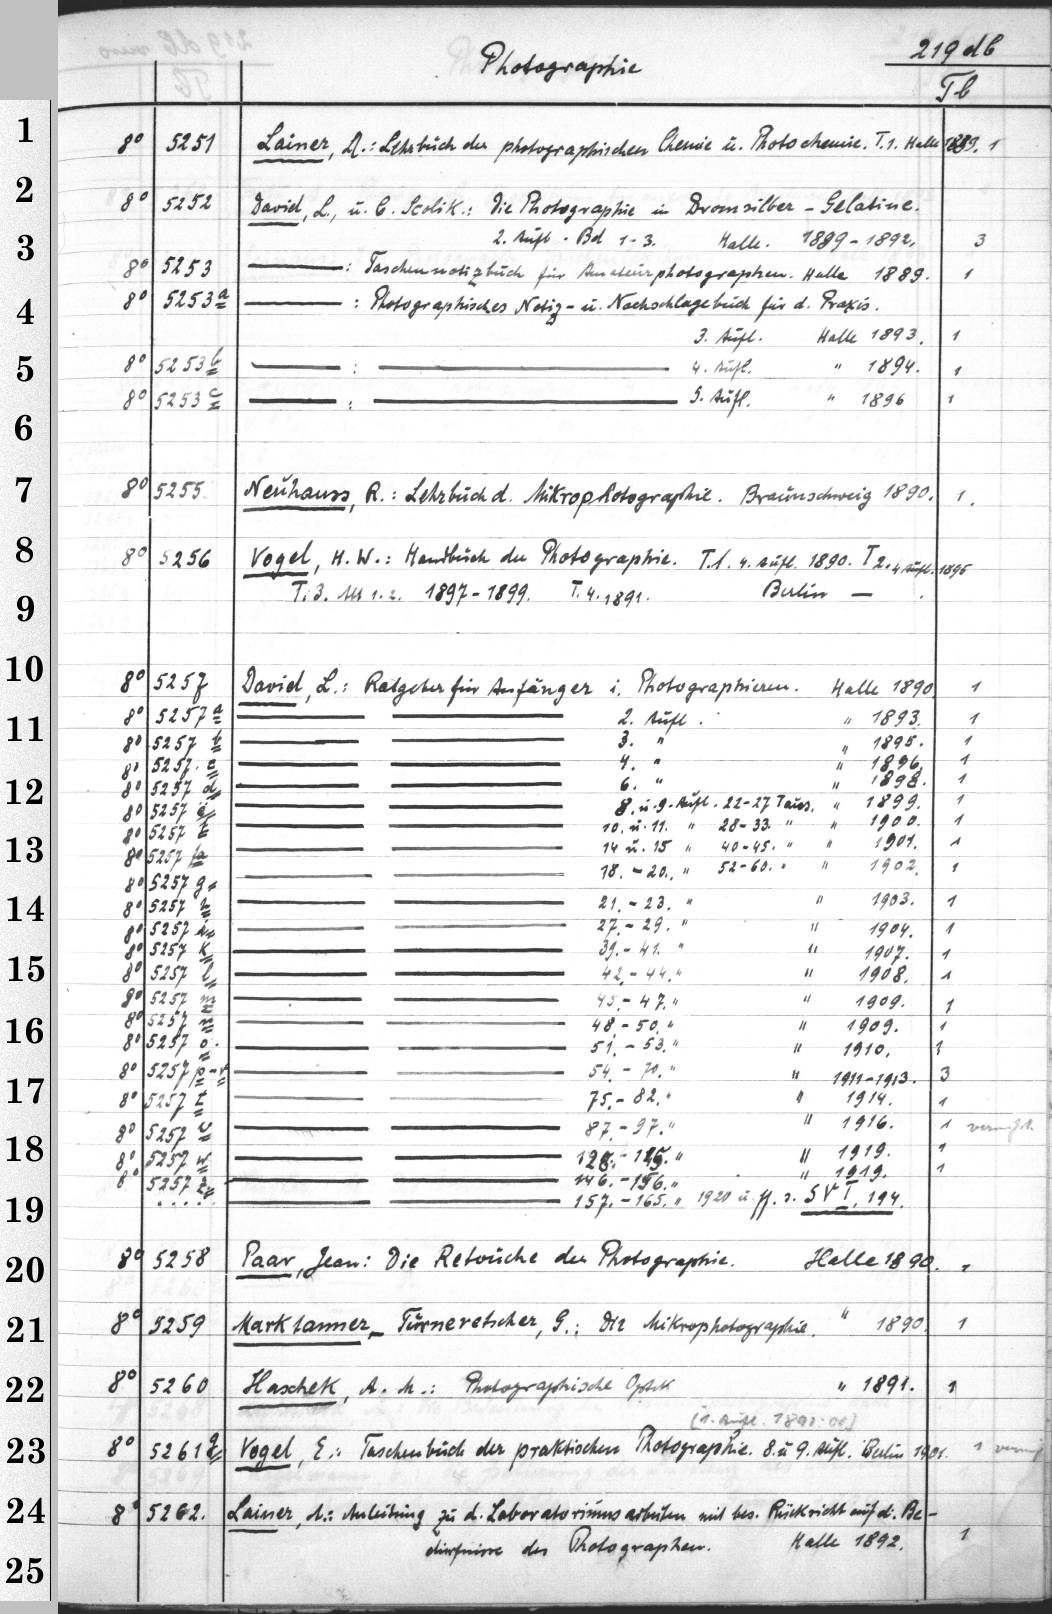 Photographie
219 db
Tb
1
8° 5251 Lainer, A.: Lehrbuch der photographischen Chemie u. Photochemie. T. 1. Halle 1889. 1
2
8° 5252 David, L., u. C. Scolik.: Die Photographie in Bromsilber - Gelatine.
2. Aufl. Bd 1-3. Halle. 1889-1892. 3
3
8° 5253 ——: Taschennotizbuch für Amateurphotographen. Halle 1889. 1
8° 5253 a ——: Photographisches Notiz- u. Nachschlagebuch für d. Praxis.
4
3. Aufl. Halle 1893. 1
5
8° 5253 b ——: —— 4. Aufl. " 1894. 1
8° 5253 c ——: —— 5. Aufl. " 1896 1
6
7
8° 5255 Neuhauss, R.: Lehrbuch d. Mikrophotographie. Braunschweig 1890. 1.
8
8° 5256 Vogel, H. W.: Handbuch der Photographie. T. 1. 4. Aufl. 1890. T 2. 4 Aufl. 1895
9
T. 3. Abt 1. 2. 1897-1899. T. 4. 1891. Berlin —
10
8° 5257 David, L.: Ratgeber für Anfänger i. Photographieren. Halle 1890 1
11
8° 5257 a —— —— 2. Aufl. " 1893. 1
8° 5257 b —— —— 3. " " 1895. 1
8° 5257 c —— —— 4. " " 1896. 1
12
8° 5257 d —— —— 6. " " 1898. 1
8° 5257 e —— —— 8. u. 9. Aufl. 22-27 Taus. " 1899. 1
8° 5257 f —— —— 10. u. 11. " 28-33. " " 1900. 1
13
8° 5257 fa —— —— 14 u. 15 " 40-45. " " 1901. 1
8° 5257 g —— —— 18. - 20. " 52-60. " " 1902. 1
14
8° 5257 h —— —— 21. - 23. " " 1903. 1
8° 5257 i —— —— 27. - 29. " " 1904. 1
8° 5257 k —— —— 39. - 41. " " 1907. 1
15
8° 5257 l —— —— 42. - 44. " " 1908. 1
8° 5257 m —— —— 45. - 47. " " 1909. 1
16
8° 5257 n —— —— 48. - 50. " " 1909. 1
8° 5257 o —— —— 51. - 53. " " 1910. 1
8° 5257 p-r —— —— 54. - 70. " " 1911-1913. 3
17
8° 5257 t —— —— 75. - 82. " " 1914. 1
8° 5257 v —— —— 87. - 97. " " 1916. 1
18
8° 5257 w —— —— - 125. " " 1919. 1
8° 5257 z —— —— 146. - 156. " " 1919. 1
19
..... —— —— 157. - 165. " 1920 u. ff. s. SVI, 194.
20
8° 5258 Paar, Jean: Die Retouche der Photographie. Halle 1890. 1
21
8° 5259 Marktanner - Turneretscher, G.: Die Mikrophotographie. " 1890. 1
22
8° 5260 Haschek, A. M.: Photographische Optik " 1891. 1
(1. Aufl. 1891:00)
23
8° 5261 a Vogel, E.: Taschenbuch der praktischen Photographie. 8. u 9. Aufl. Berlin 1901. 1
24
8° 5262. Lainer, A.: Anleitung zu d. Laboratoriumsarbeiten mit bes. Rücksicht auf d. Be-
dürfnisse des Photographen. Halle 1892. 1
25